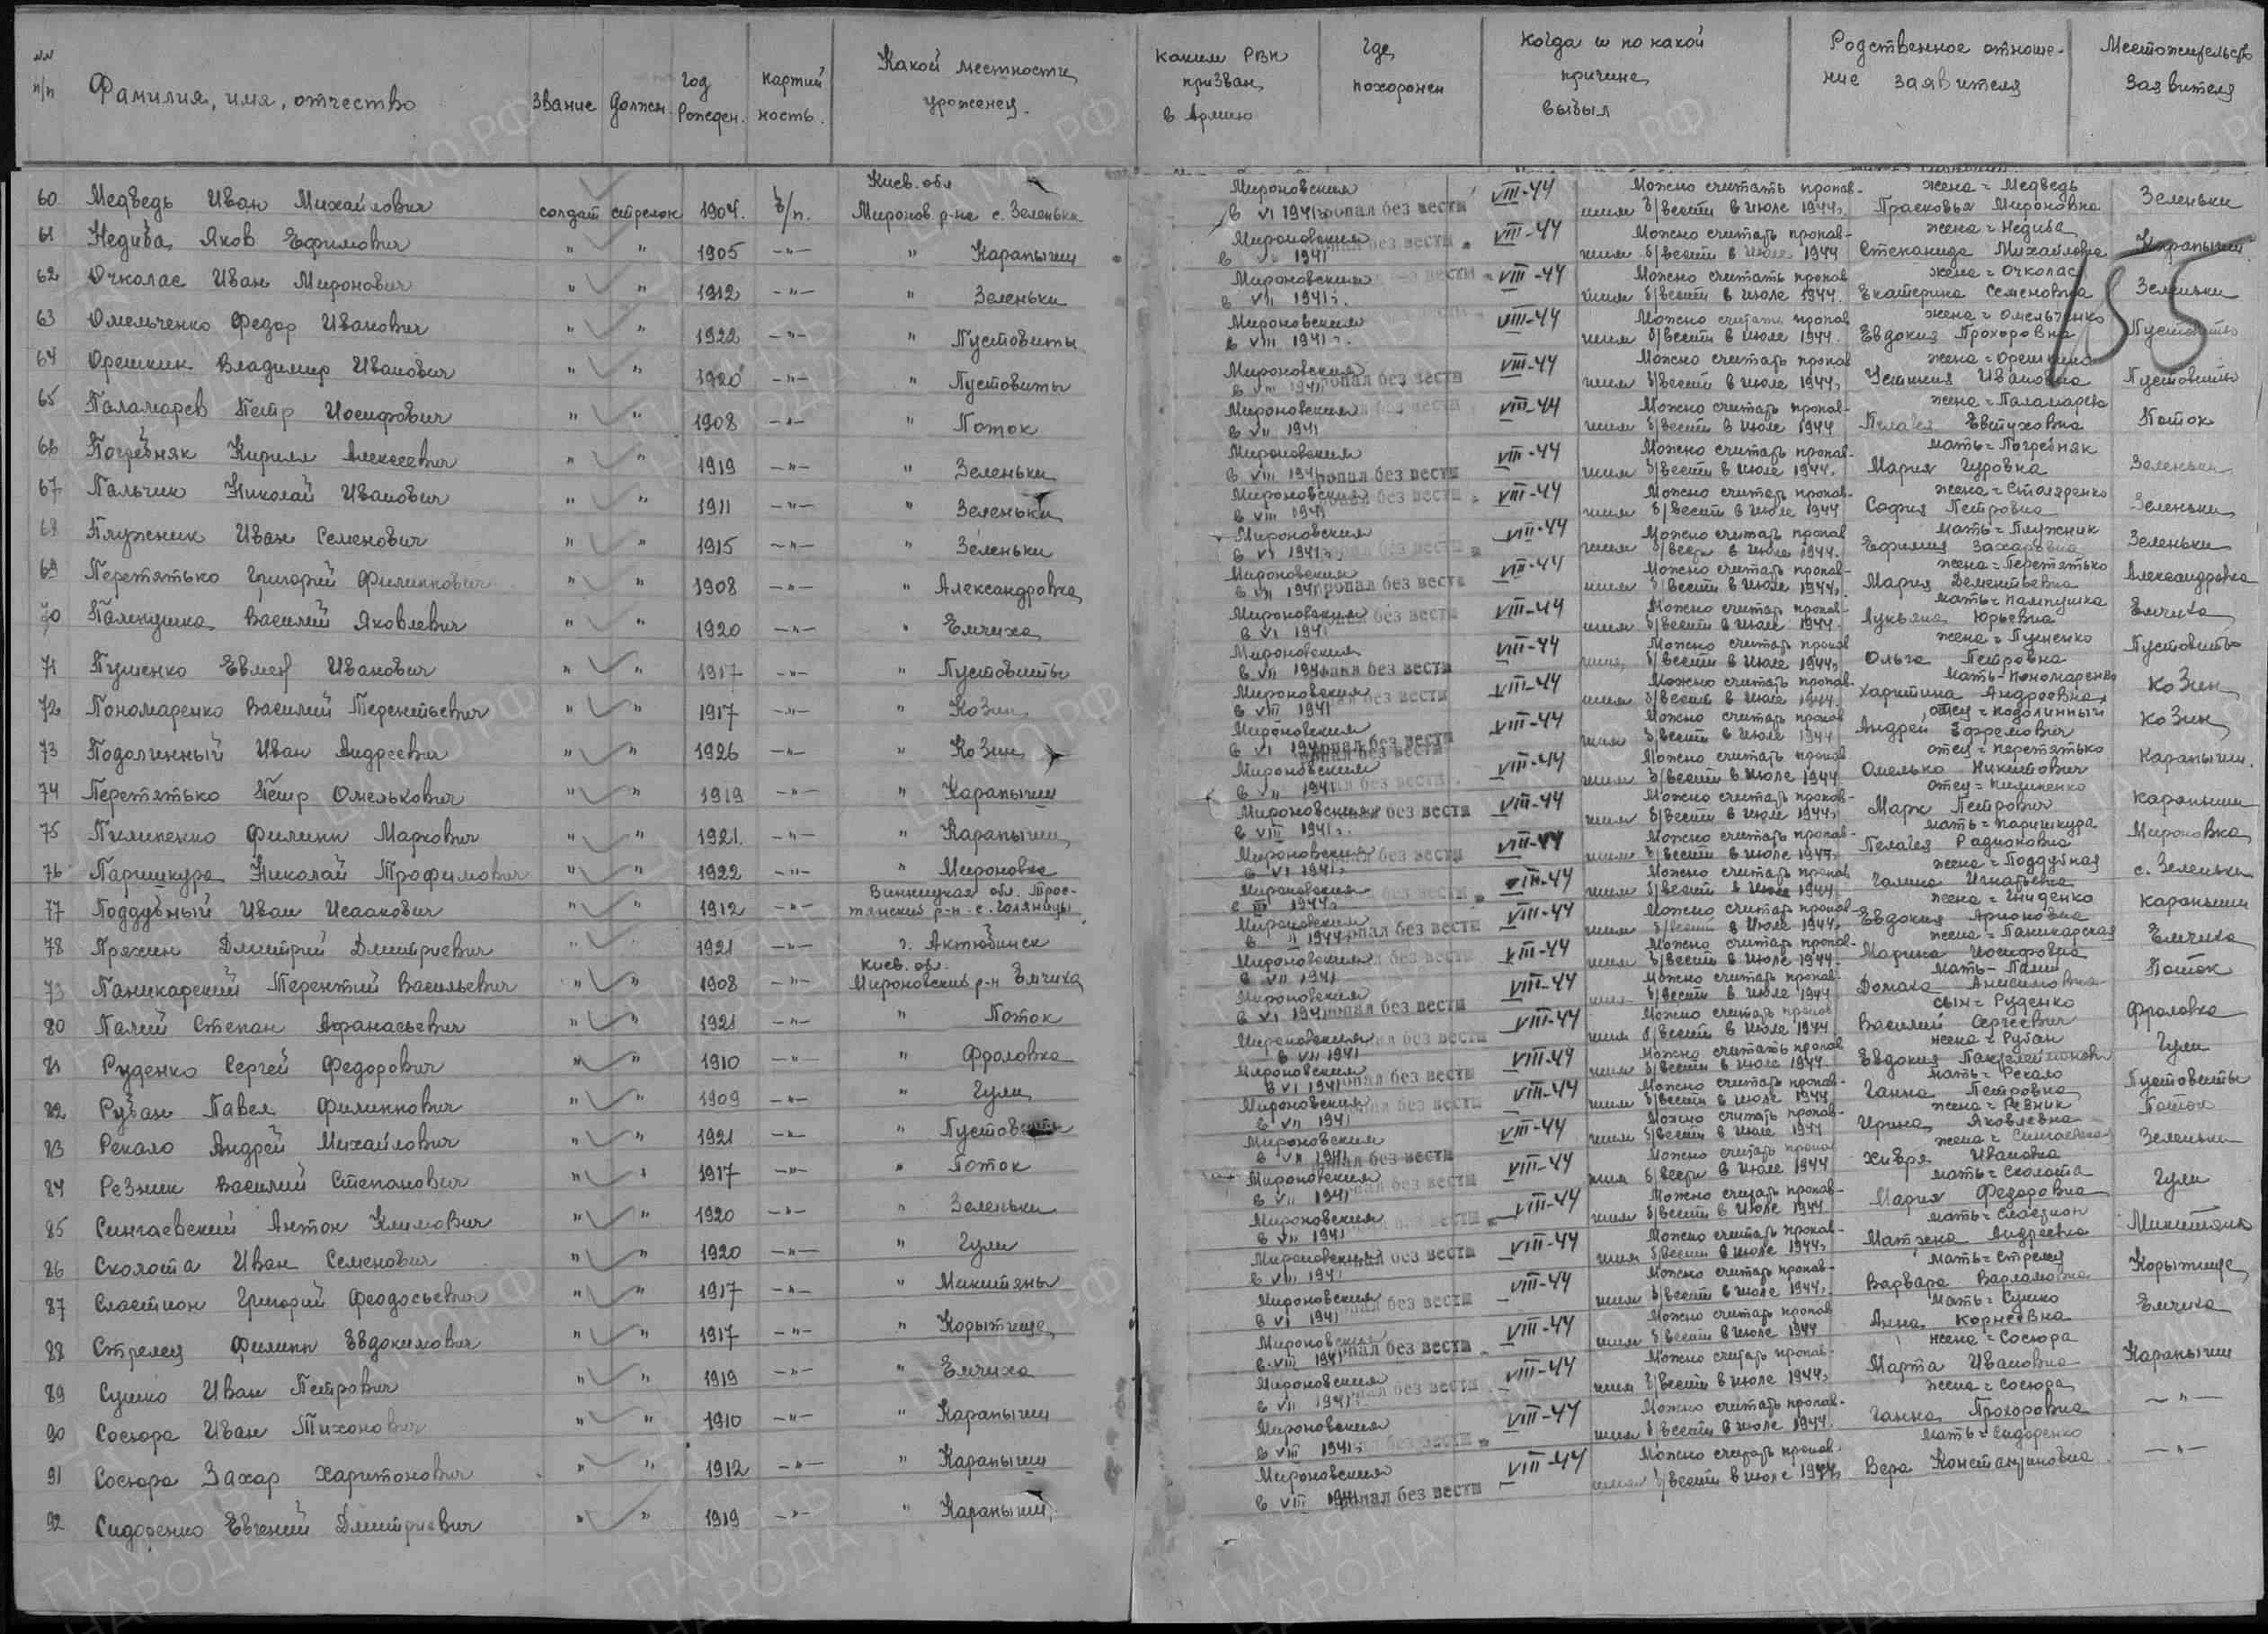 №№ п/п Фамилия, имя, отчество Звание Должн. Год Рожден. Партий ность. Какой местности уроженец. Каким РВК призван в Армию Где похоронен Когда и по какой причине выбыл Родственное отноше- ние заявителя Местожительство Заявителя
60 Медведь Иван Михайлович солдат стрелок 1904. б/п. Киев. обл Миронов. р-на с. Зеленька Мироновским в VI 1941г пропал без вести VIII-44 Можно считать пропав- шим б/вести в июле 1944г. жена = Медведь Прасковья Мироновна Зеленьки
61 Недиба Яков Ефимович " " 1905 -"- " Карапыши Мироновским в 1941 пропал без вести VIII-44 Можно считать пропав- шим б/вести в июле 1944 жена = Недиба Степанида Михайловна Карапыши
62 Очколас Иван Миронович " " 1912 -"- " Зеленьки Мироновским в VII 1941г. VIII-44 Можно считать пропав шим б/вести в июле 1944. жена = Очколас Екатерина Семеновна Зеленьки
155
63 Омельченко Федор Иванович " " 1922 -"- " Пустовиты Мироновским в VIII 1941г. VIII-44 Можно считать пропав шим б/вести в июле 1944. жена = Омельченко Евдокия Прохоровна Пустовиты
64 Орешкин Владимир Иванович " " 1920 -"- " Пустовиты Мироновским в VII 1941 пропал без вести VIII-44 Можно считать пропав шим б/вести в июле 1944г. жена = Орешкина Устиния Ивановна Пустовиты
65 Паламарев Петр Иосифович " " 1908 -"- " Поток Мироновским в VII 1941 пропал без вести VIII-44 Можно считать пропав- шим б/вести в июле 1944 жена = Паламарева Пелагея Евтуховна Поток
66 Погребняк Кирилл Алексеевич " " 1919 -"- " Зеленьки Мироновским в VIII 1941 пропал без вести VIII-44 Можно считать пропав- шим б/вести в июле 1944. мать = Погребняк Мария Гуровна Зеленьки
67 Пальчик Николай Иванович " " 1911 -"- " Зеленьки Мироновским в VIII 1941 пропал без вести VIII-44 Можно считать пропав- шим б/вести в июле 1944 жена = Столяренко София Петровна Зеленьки
68 Плужник Иван Семенович " " 1915 -"- " Зеленьки Мироновским в VI 1941г. пропал без вести VIII-44 Можно считать пропав шим б/вести в июле 1944. мать = Плужник Ефимия Захаровна Зеленьки
69 Перетятько Григорий Филиппович " " 1908 -"- " Александровка Мироновским в VII 1941 пропал без вести VIII-44 Можно считать пропав- шим б/вести в июле 1944. жена = Перетятько Мария Дементьевна Александровка
70 Пампушка Василий Яковлевич " " 1920 -"- " Емчиха Мироновским в VI 1941 пропал без вести VIII-44 Можно считать пропав- шим б/вести в июле 1944. мать = Пампушка Лукьяна Юрьевна Емчиха
71 Пушенко Евмен Иванович " " 1917 -"- " Пустовиты Мироновским в VII 1941 пропал без вести VIII-44 Можно считать пропав шим б/вести в июле 1944г. жена = Пушенко Ольга Петровна Пустовиты
72 Пономаренко Василий Терентьевич " " 1917 -"- " Козин Мироновским в VIII 1941 пропал без вести VIII-44 Можно считать пропав- шим б/вести в июле 1944. мать = Пономаренко Харитина Андреевна Козин
73 Подолинный Иван Андреевич " " 1926 -"- " Козин Мироновским в VI 1941 пропал без вести VIII-44 Можно считать пропав шим б/вести в июле 1944 отец = Подолинный Андрей Ефремович Козин
74 Перетятько Петр Омелькович " " 1919 -"- " Карапыши Мироновским в VII 1941 пропал без вести VIII-44 Можно считать пропав шим б/вести в июле 1944 отец = Перетятько Омелько Никитович Карапыши.
75 Пилипенко Филипп Маркович " " 1921. -"- " Карапыши Мироновским в VIII 1941г. пропал без вести VIII-44 Можно считать пропав- шим б/вести в июле 1944г. отец = Пилипенко Марк Петрович Карапыши
76 Паришкура Николай Трофимович " " 1922 -"- " Мироновка Мироновским в VI 1941г. пропал без вести VIII-44 Можно считать пропав- шим б/вести в июле 1944. мать = Паришкура Пелагея Радионовна Мироновка
77 Поддубный Иван Исаакович " " 1912 -"- Винницкая обл. Трос- тянский р-н. с. Голяницы Мироновским в III 1944г. пропал без вести VIII-44 Можно считать пропав шим б/вести в июле 1944 жена = Поддубная Галина Игнатьевна с. Зеленьки
78 Пряхин Дмитрий Дмитриевич " " 1921 -"- г. Актюбинск Мироновским в II 1944г. пропал без вести VIII-44 Можно считать пропав- шим б/вести в июле 1944. жена = Гниденко Евдокия Арионовна Карапыши
79 Паникарский Терентий Васильевич " " 1908 -"- Киев. обл. Мироновский р-н Емчиха Мироновским в VII 1941 пропал без вести VIII-44 Можно считать пропав- шим б/вести в июле 1944. жена = Паникарская Марина Иосифовна Емчиха
80 Палий Степан Афанасьевич " " 1921 -"- " Поток Мироновским в VI 1941 пропал без вести VIII-44 Можно считать пропав- шим б/вести в июле 1944 мать - Палий Домаха Анисимовна Поток
81 Руденко Сергей Федорович " " 1910 -"- " Фроловка Мироновским в VII 1941 пропал без вести VIII-44 Можно считать пропав шим б/вести в июле 1944 сын = Руденко Василий Сергеевич Фроловка
82 Рубан Павел Филиппович " " 1909 -"- " Гули Мироновским в VI 1941 пропал без вести VIII-44 Можно считать пропав шим б/вести в июле 1944. жена = Рубан Евдокия Пантелеймонов Гули
83 Рекало Андрей Михайлович " " 1921 -"- " Пустовиты Мироновским в VII 1941 пропал без вести VIII-44 Можно считать пропав- шим б/вести в июле 1944 мать = Рекало Ганна Петровна Пустовиты
84 Резник Василий Степанович " " 1917 -"- " Поток Мироновским в VII 1941 пропал без вести VIII-44 Можно считать пропав- шим б/вести в июле 1944 жена = Резник Ирина Яковлевна Поток
85 Сингаевский Антон Климович " " 1920 -"- " Зеленьки Мироновским в VII 1941 пропал без вести VIII-44 Можно считать пропав шим б/вести в июле 1944 жена = Сингаевская Хивря Ивановна Зеленьки
86 Сколота Иван Семенович " " 1920 -"- " Гули Мироновским в VII 1941 пропал без вести VIII-44 Можно считать пропав- шим б/вести в июле 1944. мать = Сколота Мария Федоровна Гули
87 Сластион Григорий Феодосьевич " " 1917 -"- " Микитяны Мироновским в VIII 1941 пропал без вести VIII-44 Можно считать пропав- шим б/вести в июле 1944г. мать = Сластион Матрена Андреевна Микитяны
88 Стрелец Филипп Евдокимович " " 1917 -"- " Корытище Мироновским в VI 1941 пропал без вести VIII-44 Можно считать пропав- шим б/вести в июле 1944г. мать = Стрелец Варвара Варламовна Корытище
89 Сушко Иван Петрович " " 1919 -"- " Емчиха Мироновским в VIII 1941 пропал без вести VIII-44 Можно считать пропав шим б/вести в июле 1944 мать = Сушко Анна Корнеевна Емчиха
90 Сосюра Иван Тихонович " " 1910 -"- " Карапыши Мироновским в VII 1941г. пропал без вести VIII-44 Можно считать пропав- шим б/вести в июле 1944г. жена = Сосюра Марта Ивановна Карапыши
91 Сосюра Захар Харитонович " " 1912 -"- " Карапыши Мироновским в VIII 1941г. пропал без вести VIII-44 Можно считать пропав- шим б/вести в июле 1944. жена = Сосюра Ганна Прохоровна -"-
92 Сидоренко Евгений Дмитриевич " " 1919 -"- " Карапыши. Мироновским в VIII 1941 пропал без вести VIII-44 Можно считать пропав- шим б/вести в июле 1944г. мать = Сидоренко Вера Константиновна -"-
ПАМЯТЬ НАРОДА
ЦАМО.РФ